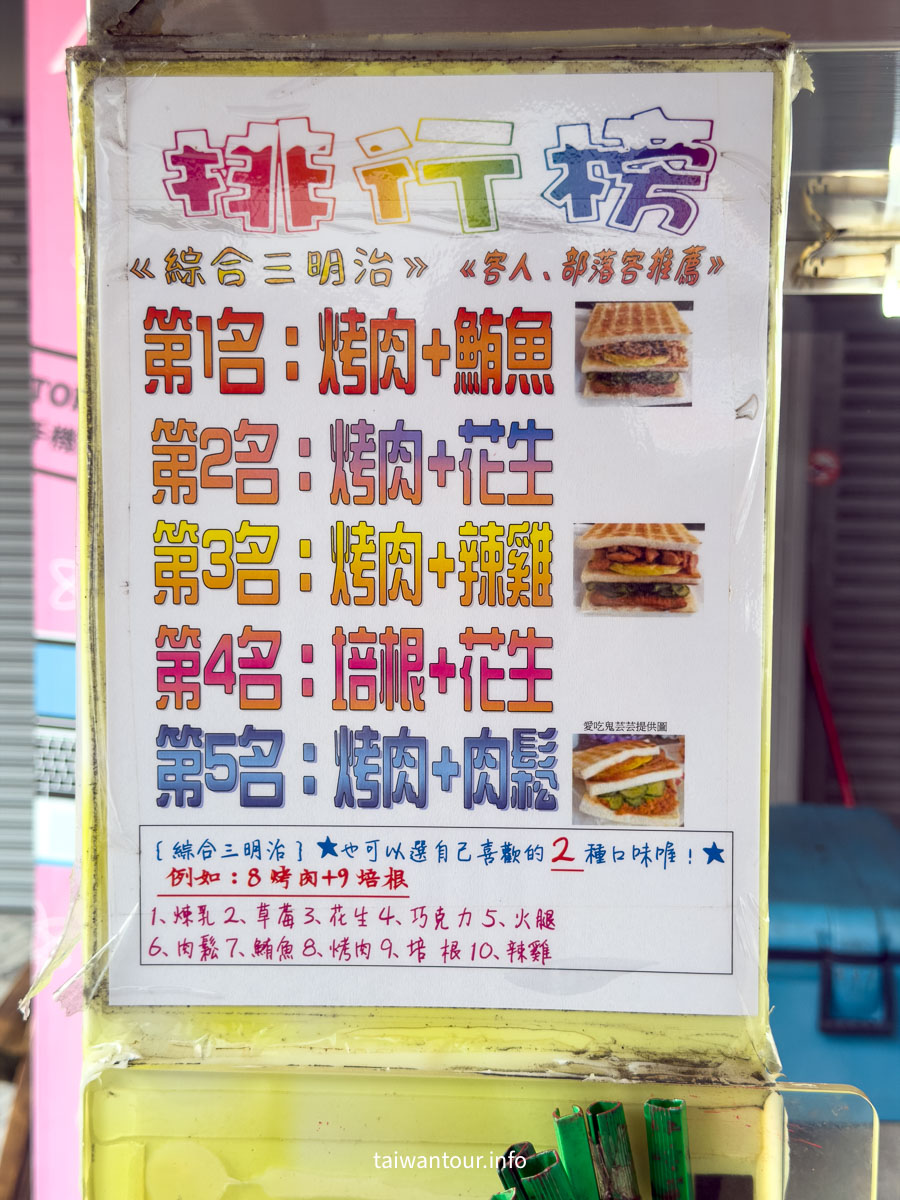 排行榜
《綜合三明治》 《客人、部落客推薦》
第1名：烤肉+鮪魚
第2名：烤肉+花生
第3名：烤肉+辣雞
第4名：培根+花生
愛吃鬼芸芸提供圖
第5名：烤肉+肉鬆
[綜合三明治] ★也可以選自己喜歡的2種口味唯！★
例如：8烤肉+9培根
1、煉乳 2、草莓 3、花生 4、巧克力 5、火腿
6、肉鬆 7、鮪魚 8、烤肉 9、培 根 10、辣雞
taiwantour.info